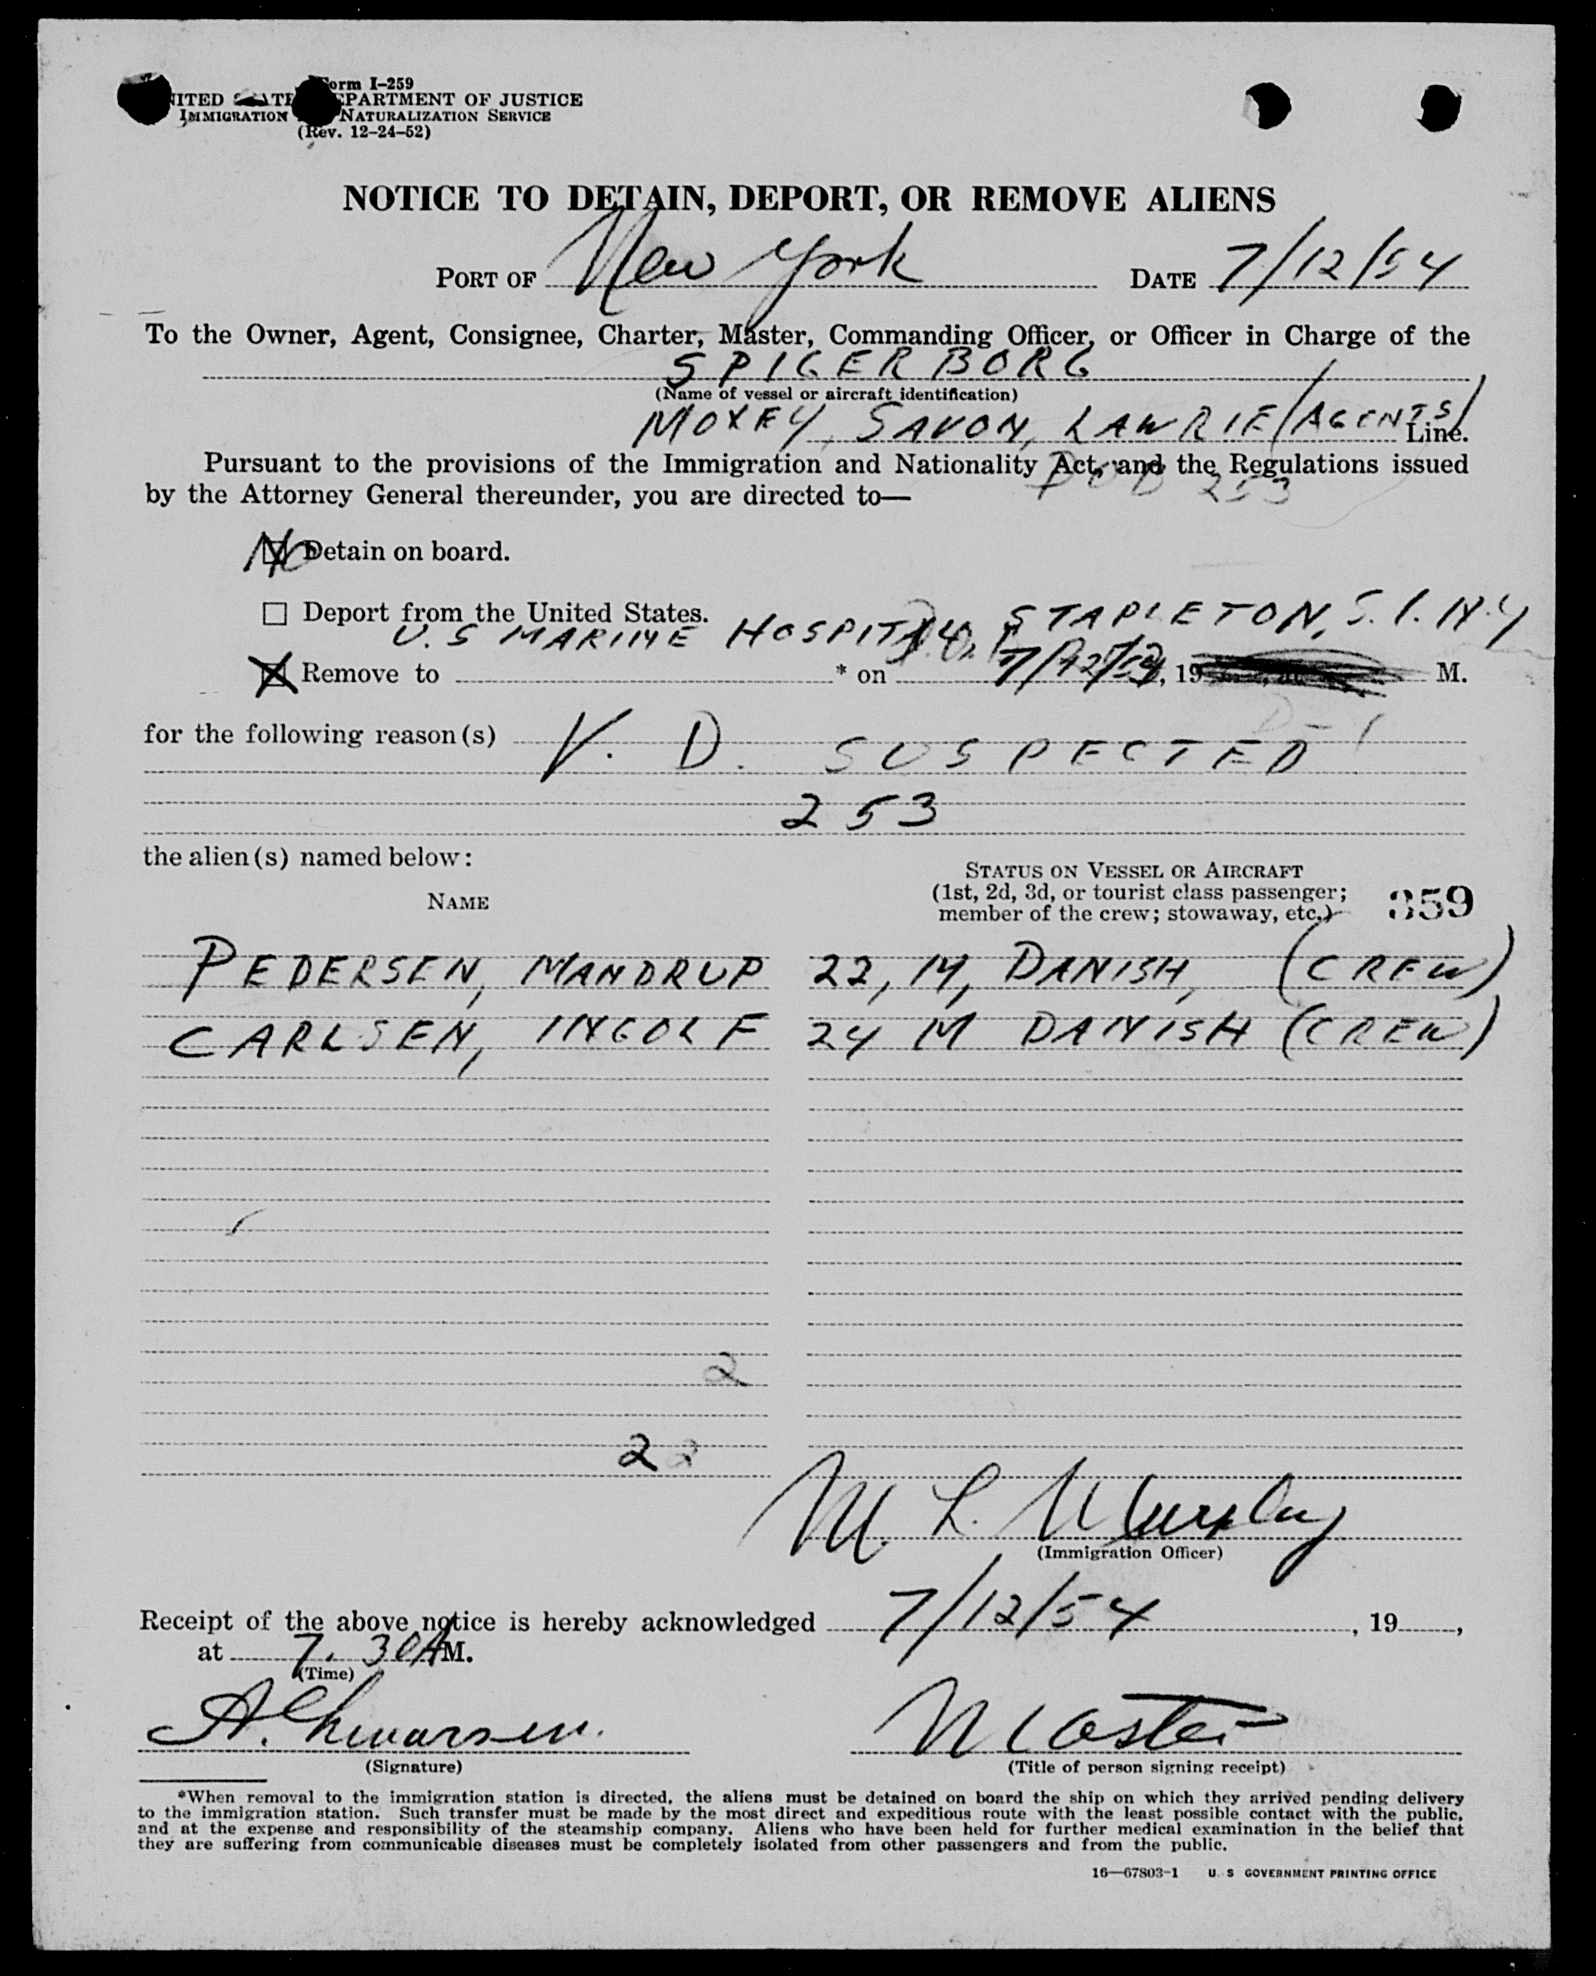 Form I-259
UNITED STATES DEPARTMENT OF JUSTICE
IMMIGRATION NATURALIZATION SERVICE
(Rev. 12-24-52)
NOTICE TO DETAIN, DEPORT, OR REMOVE ALIENS
PORT OF New York DATE 7/12/54
To the Owner, Agent, Consignee, Charter, Master, Commanding Officer, or Officer in Charge of the
SPIGERBORG
(Name of vessel or aircraft identification)
MOXEY, SAVON, LAWRIE (AGENTS) Line.
Pursuant to the provisions of the Immigration and Nationality Act, and the Regulations issued
253
by the Attorney General thereunder, you are directed to—
No Detain on board.
☐ Deport from the United States.
U.S MARINE HOSPITAL, STAPLETON, S.I. N.Y
☒ Remove to * on 7/12/54, 19 M.
for the following reason(s) V. D. SUSPECTED
253
the alien(s) named below:
NAME
STATUS ON VESSEL OR AIRCRAFT
(1st, 2d, 3d, or tourist class passenger;
member of the crew; stowaway, etc.)
359
PEDERSEN, MANDRUP 22, M, DANISH, (CREW)
CARLSEN, INGOLF 24 M DANISH (CREW)
2
2 2
M. L. Murphy
(Immigration Officer)
Receipt of the above notice is hereby acknowledged 7/12/54, 19,
at 7.30 AM.
(Time)
A. Master
(Signature) (Title of person signing receipt)
*When removal to the immigration station is directed, the aliens must be detained on board the ship on which they arrived pending delivery
to the immigration station. Such transfer must be made by the most direct and expeditious route with the least possible contact with the public,
and at the expense and responsibility of the steamship company. Aliens who have been held for further medical examination in the belief that
they are suffering from communicable diseases must be completely isolated from other passengers and from the public.
16—67803-1 U. S GOVERNMENT PRINTING OFFICE